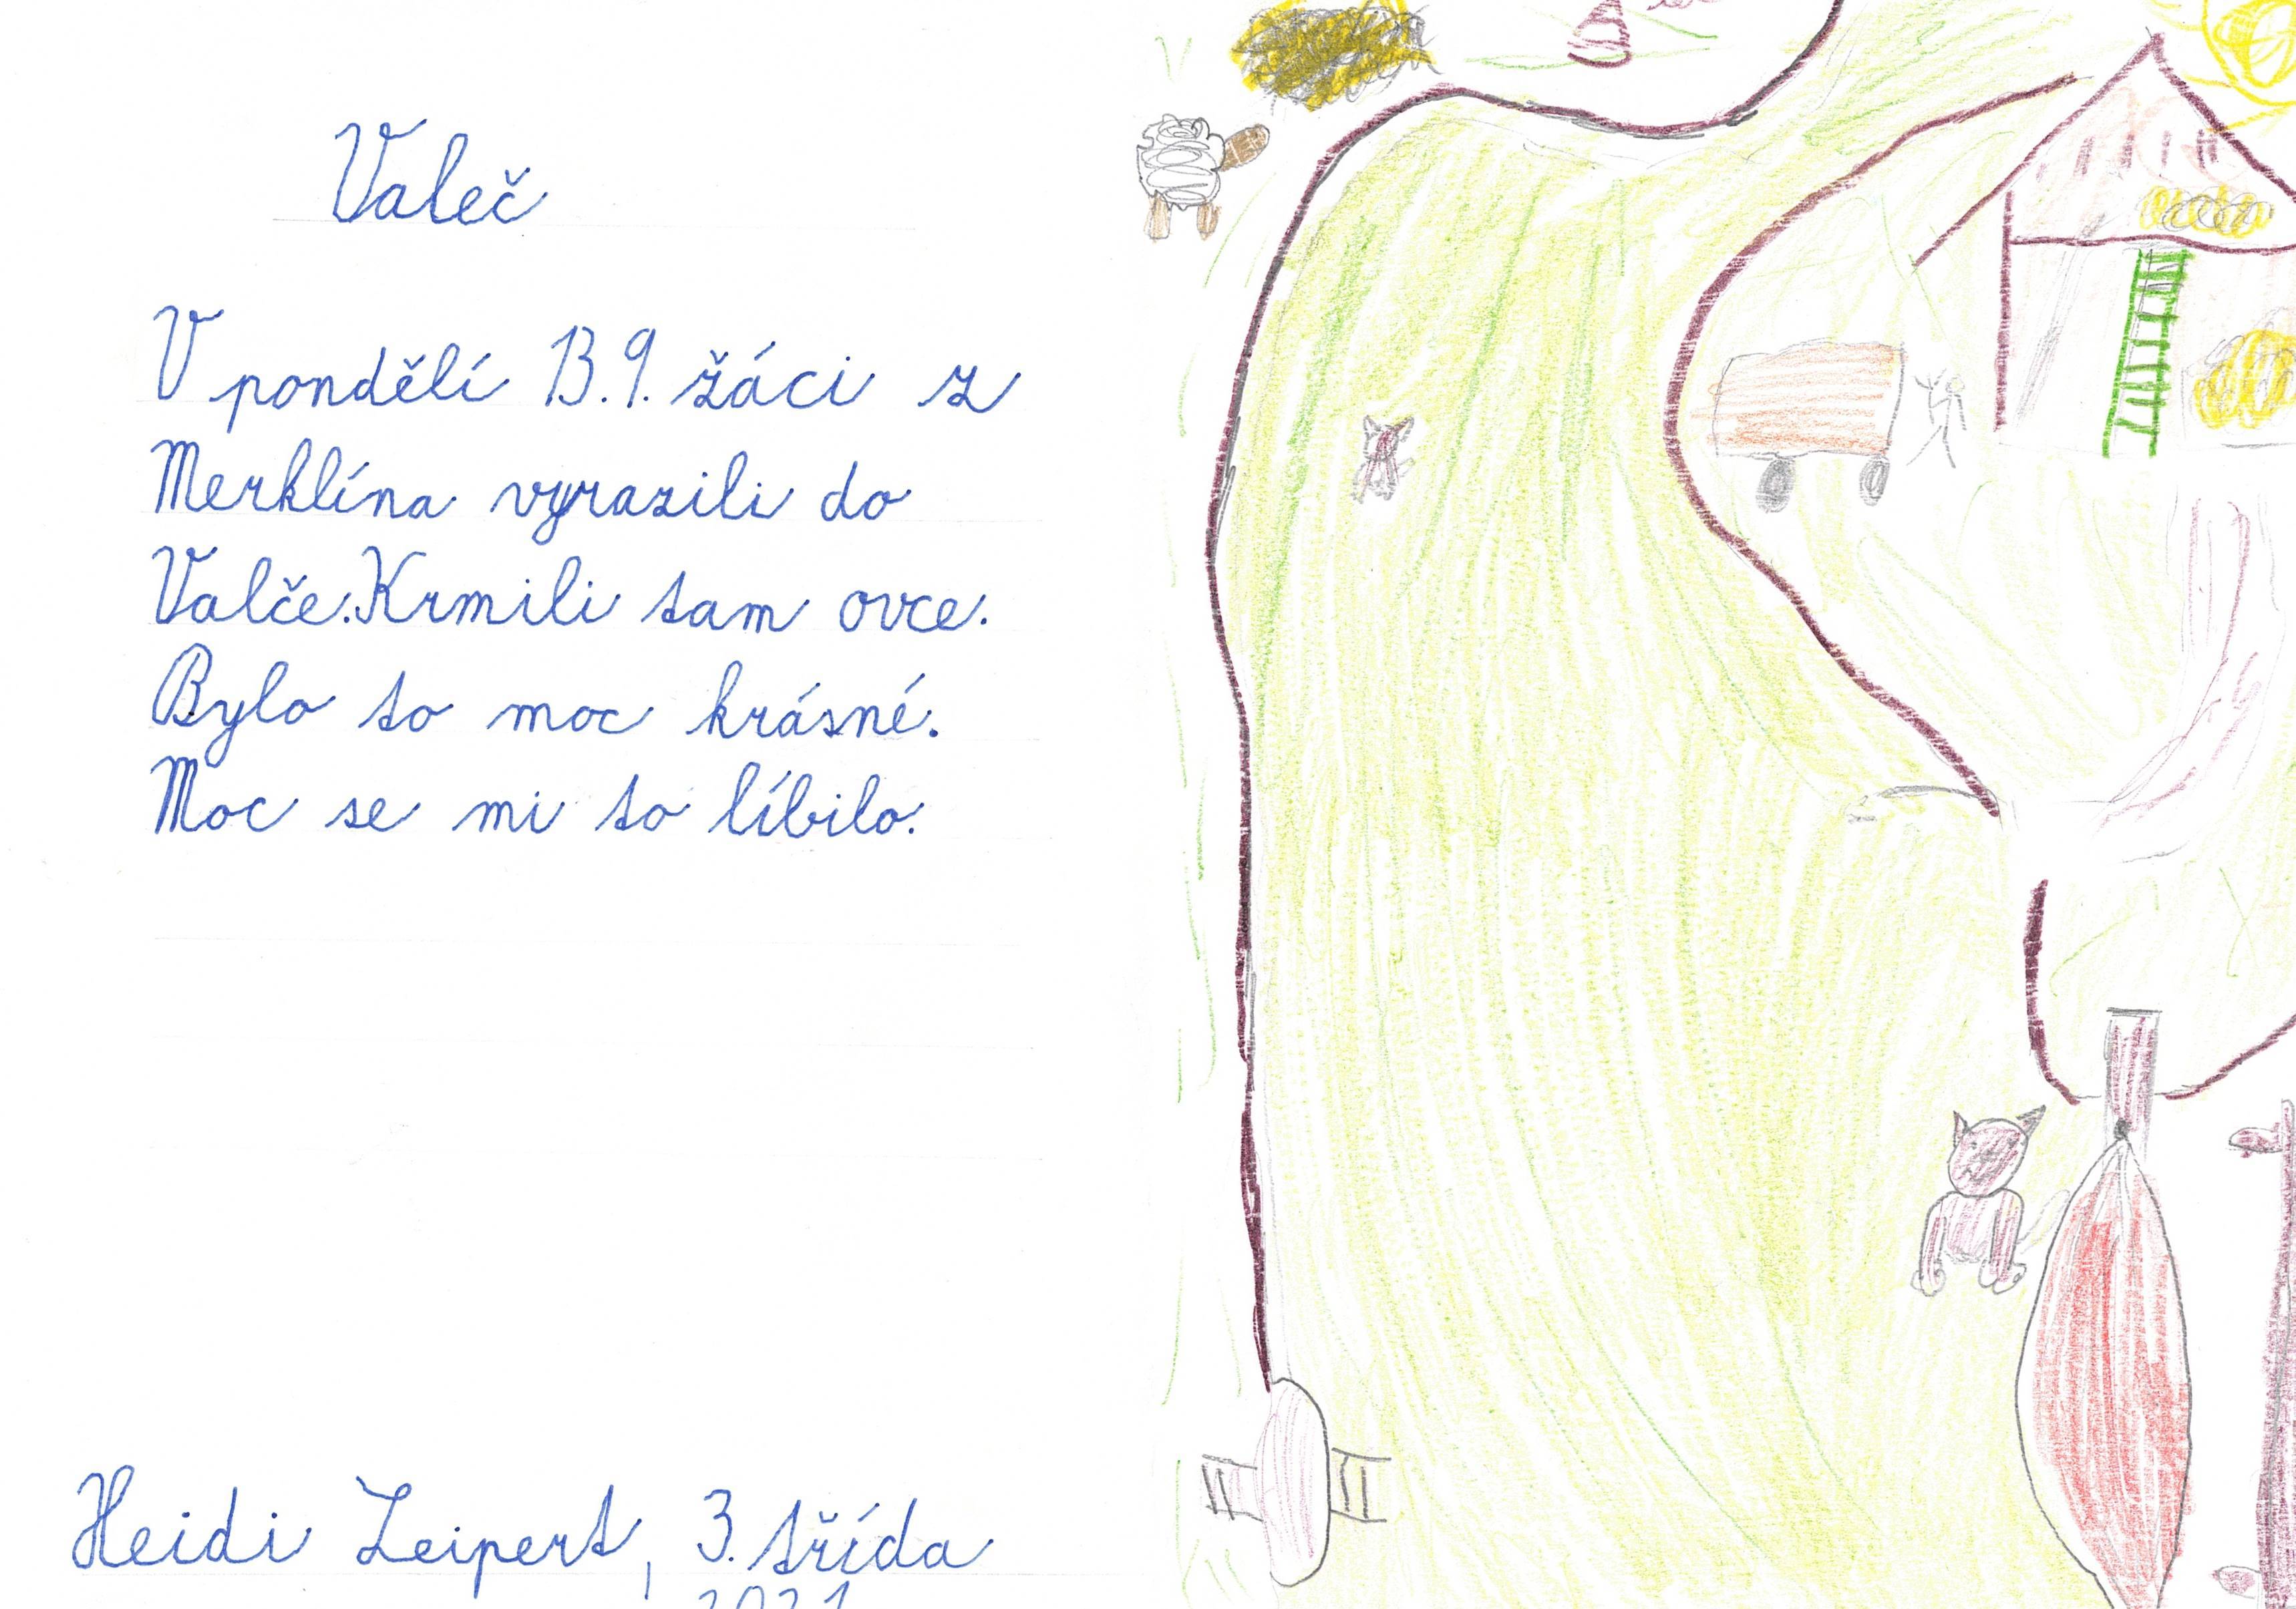 Valeč
V pondělí 13.9. žáci z
Merklína vyrazili do
Valče. Krmili tam ovce.
Bylo to moc krásné.
Moc se mi to líbilo.
Heidi Leipert, 3. třída
2021